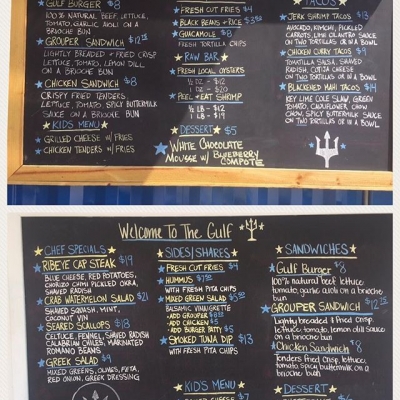 GULF BURGER $8
100% NATURAL BEEF, LETTUCE,
TOMATO, GARLIC AIOLI ON A
BRIOCHE BUN
GROUPER SANDWICH $12.25
LIGHTLY BREADED + FRIED CRISP
LETTUCE, TOMATO, LEMON DILL
ON A BRIOCHE BUN
CHICKEN SANDWICH $8
CRISPY FRIED TENDERS
LETTUCE, TOMATO, SPICY BUTTERMILK
SAUCE ON A BRIOCHE BUN
KIDS MENU
GRILLED CHEESE W/ FRIES
CHICKEN TENDERS W/ FRIES
FRESH CUT FRIES $4
BLACK BEANS + RICE $3.50
GUACAMOLE $8
FRESH TORTILLA CHIPS
RAW BAR
FRESH LOCAL OYSTERS
1/2 DZ - $12
1 DZ - $20
PEEL + EAT SHRIMP
1/2 LB - $12
1 LB - $19
DESSERT $5
WHITE CHOCOLATE
MOUSSE W/ BLUEBERRY
COMPOTE
TACOS
JERK SHRIMP TACOS $13
AVOCADO, KIMCHI, PICKLED
CARROTS, LIME CILANTRO SAUCE
ON TWO TORTILLAS OR IN A BOWL
CHICKEN CURRY TACOS $9
TOMATILLA SALSA, SHAVED
RADISH, COTIJA CHEESE
ON TWO TORTILLAS OR IN A BOWL
BLACKENED MAHI TACOS $14
KEY LIME COLE SLAW, GREEN
TOMATO, CAULIFLOWER CHOW
CHOW, SPICY BUTTERMILK SAUCE
ON TWO TORTILLAS OR IN A BOWL
Welcome To The Gulf
CHEF SPECIALS
RIBEYE CAP STEAK $19
BLUE CHEESE, RED POTATOES,
CHORIZO CHIPS PICKLED OKRA,
SHAVED RADISH
CRAB WATERMELON SALAD $21
SHAVED SQUASH, MINT,
COCONUT VIN
SEARED SCALLOPS $18
CELTUCE, FENNEL, SHAVED RADISH
CALABRIAN CHILES, MARINATED
ROMANO BEANS
GREEK SALAD $9
MIXED GREENS, OLIVES, FETA,
RED ONION, GREEK DRESSING
SIDES/SHARES
FRESH CUT FRIES $4
HUMMUS
WITH FRESH PITA CHIPS
MIXED GREEN SALAD
BALSAMIC VINIGRETTE
- ADD GROUPER $8.00
- ADD CHICKEN
- ADD BURGER PATTY $5
SMOKED TUNA DIP $13
WITH FRESH PITA CHIPS
KIDS MENU
SANDWICHES
Gulf Burger $8
100% natural beef lettuce
tomato, garlic aioli on a brioche
bun
GROUPER SANDWICH $12.25
Lightly breaded & Fried Crisp
lettuce, tomato, lemon dill sauce
on a brioche bun
Chicken Sandwich $8
Tenders fried Crisp, lettuce,
tomato, spicy buttermilk on a
brioche bun
DESSERT